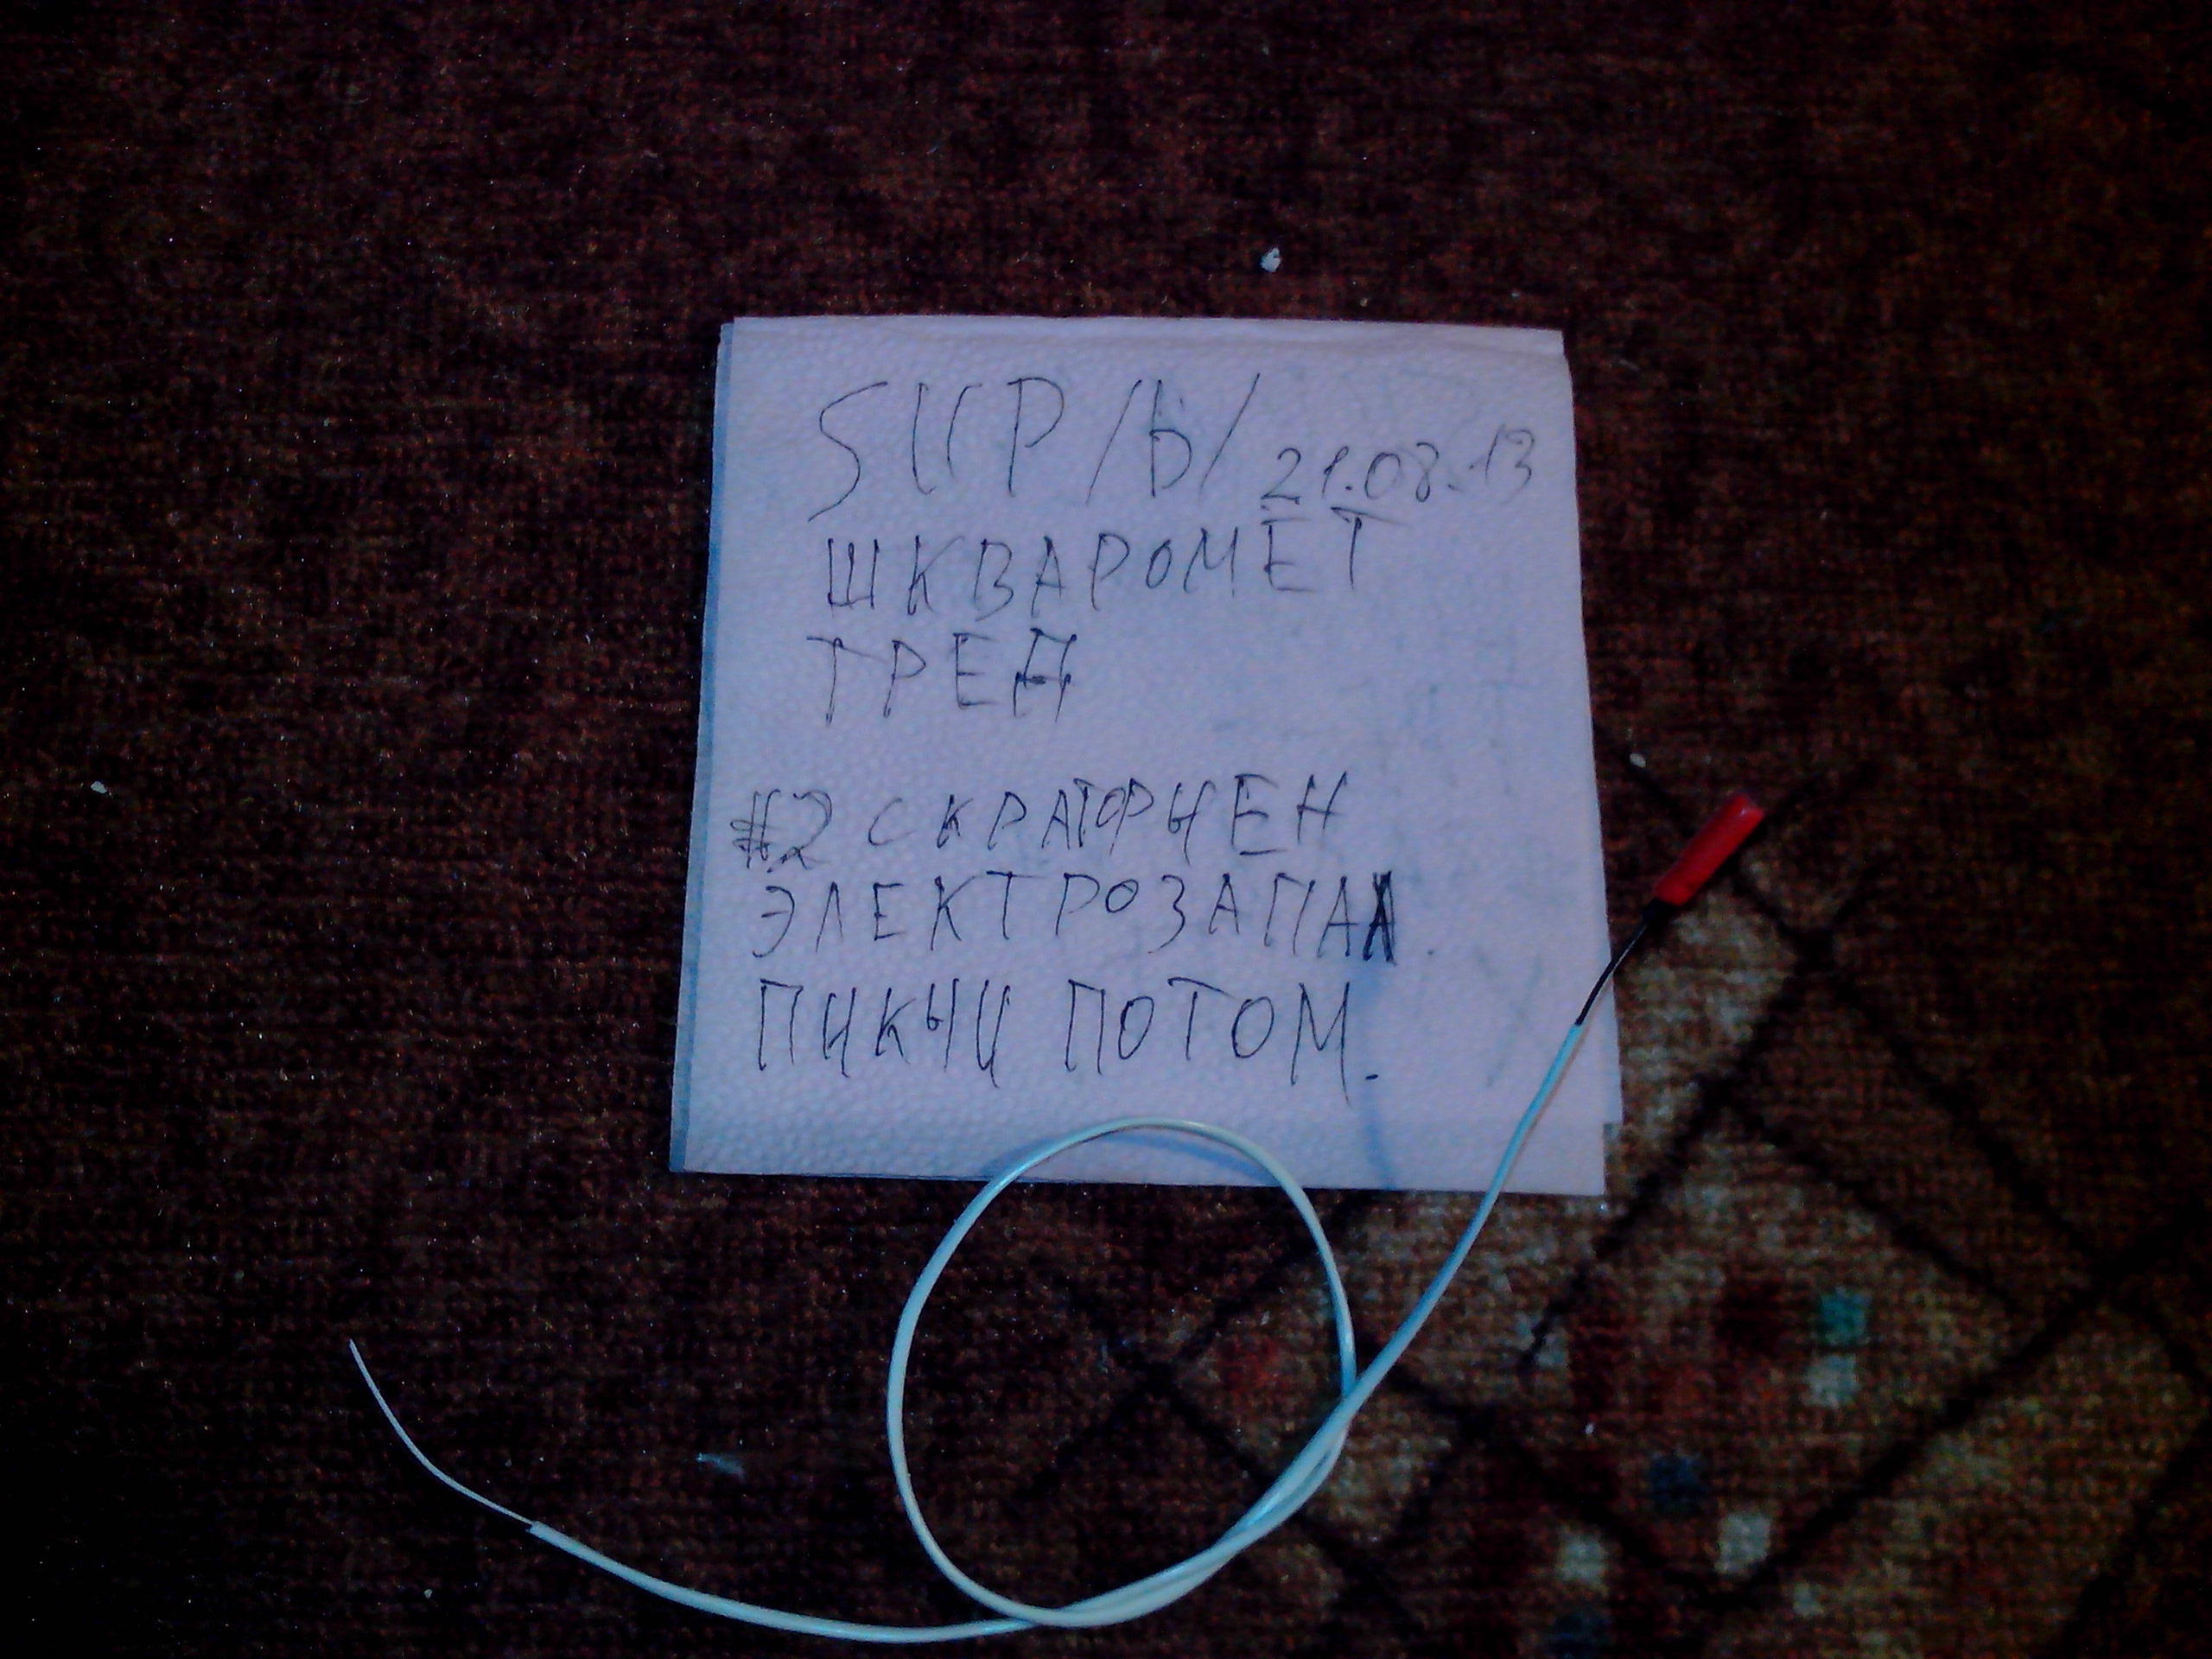 SUP /b/ 21.08.13
ШКВАРОМЕТ
ТРЕД
#2 СКРАФЧЕН
ЭЛЕКТРОЗАПАЛ.
ПИКЧИ ПОТОМ.